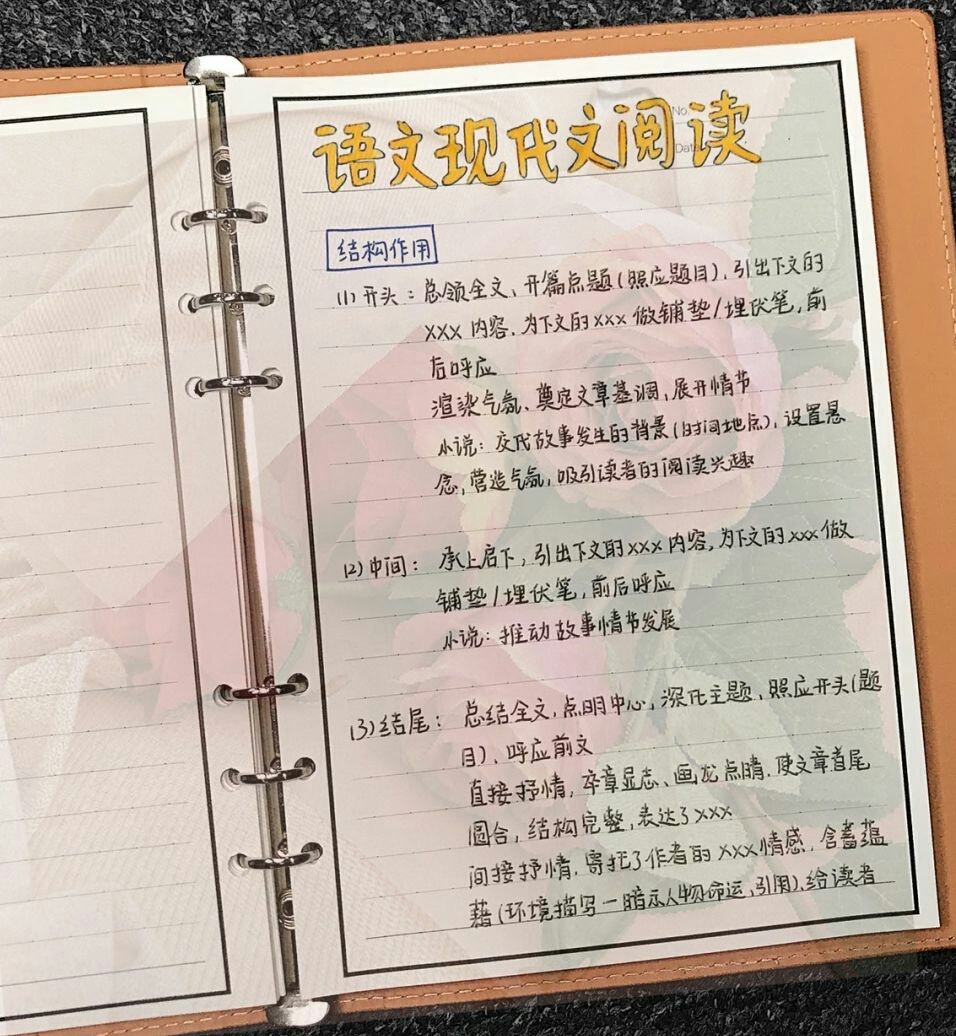 No.
Date
语文现代文阅读
结构作用
(1)开头：总领全文、开篇点题(照应题目)、引出下文的
XXX内容、为下文的XXX做铺垫/埋伏笔，前
后呼应
渲染气氛、奠定文章基调，展开情节
小说：交代故事发生的背景(时间地点)，设置悬
念，营造气氛，吸引读者的阅读兴趣
(2)中间：承上启下，引出下文的XXX内容，为下文的XXX做
铺垫/埋伏笔，前后呼应
小说：推动故事情节发展
(3)结尾：总结全文，点明中心，深化主题、照应开头(题
目)、呼应前文
直接抒情，卒章显志、画龙点睛，使文章首尾
圆合，结构完整，表达了XXX
间接抒情，寄托了作者的XXX情感，含蓄蕴
藉(环境描写一暗示人物命运、引用)，给读者